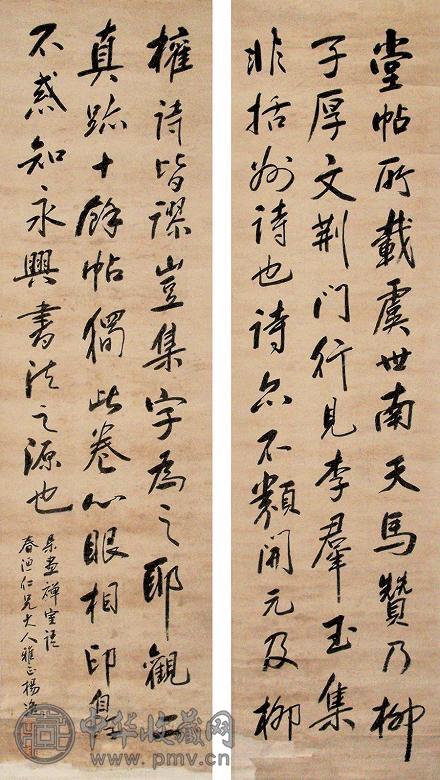 堂帖所載虞世南天馬贊乃柳
子厚文荆門行見李羣玉集
非括州詩也詩亦不類開元及柳
權詩皆謬豈集字為之耶觀
真跡十餘帖獨此卷心眼相印
不惑知永興書法之源也
畫禪室語
春漁仁兄大人雅正楊逸
中华收藏网
www.pmv.cn